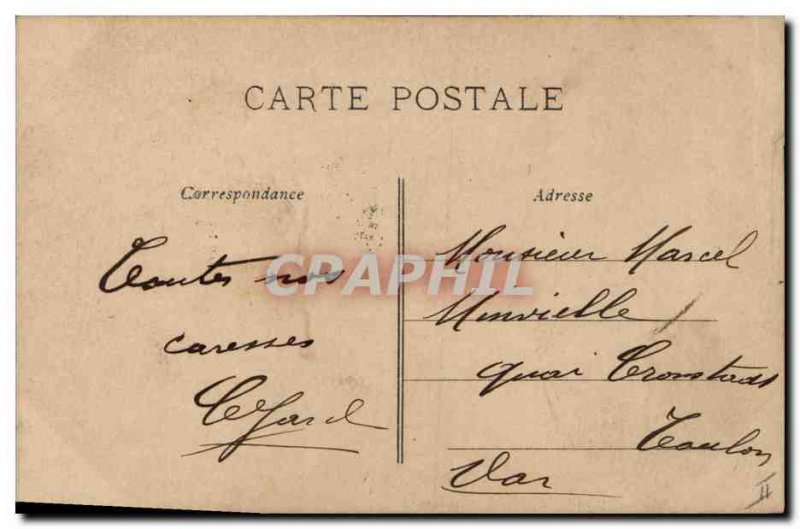 CARTE POSTALE
Correspondance
Adresse
Toutes nos
caresses
Monsieur Marcel
Minvielle
quai Cronstadt
Toulon
Var
CPAPHIL